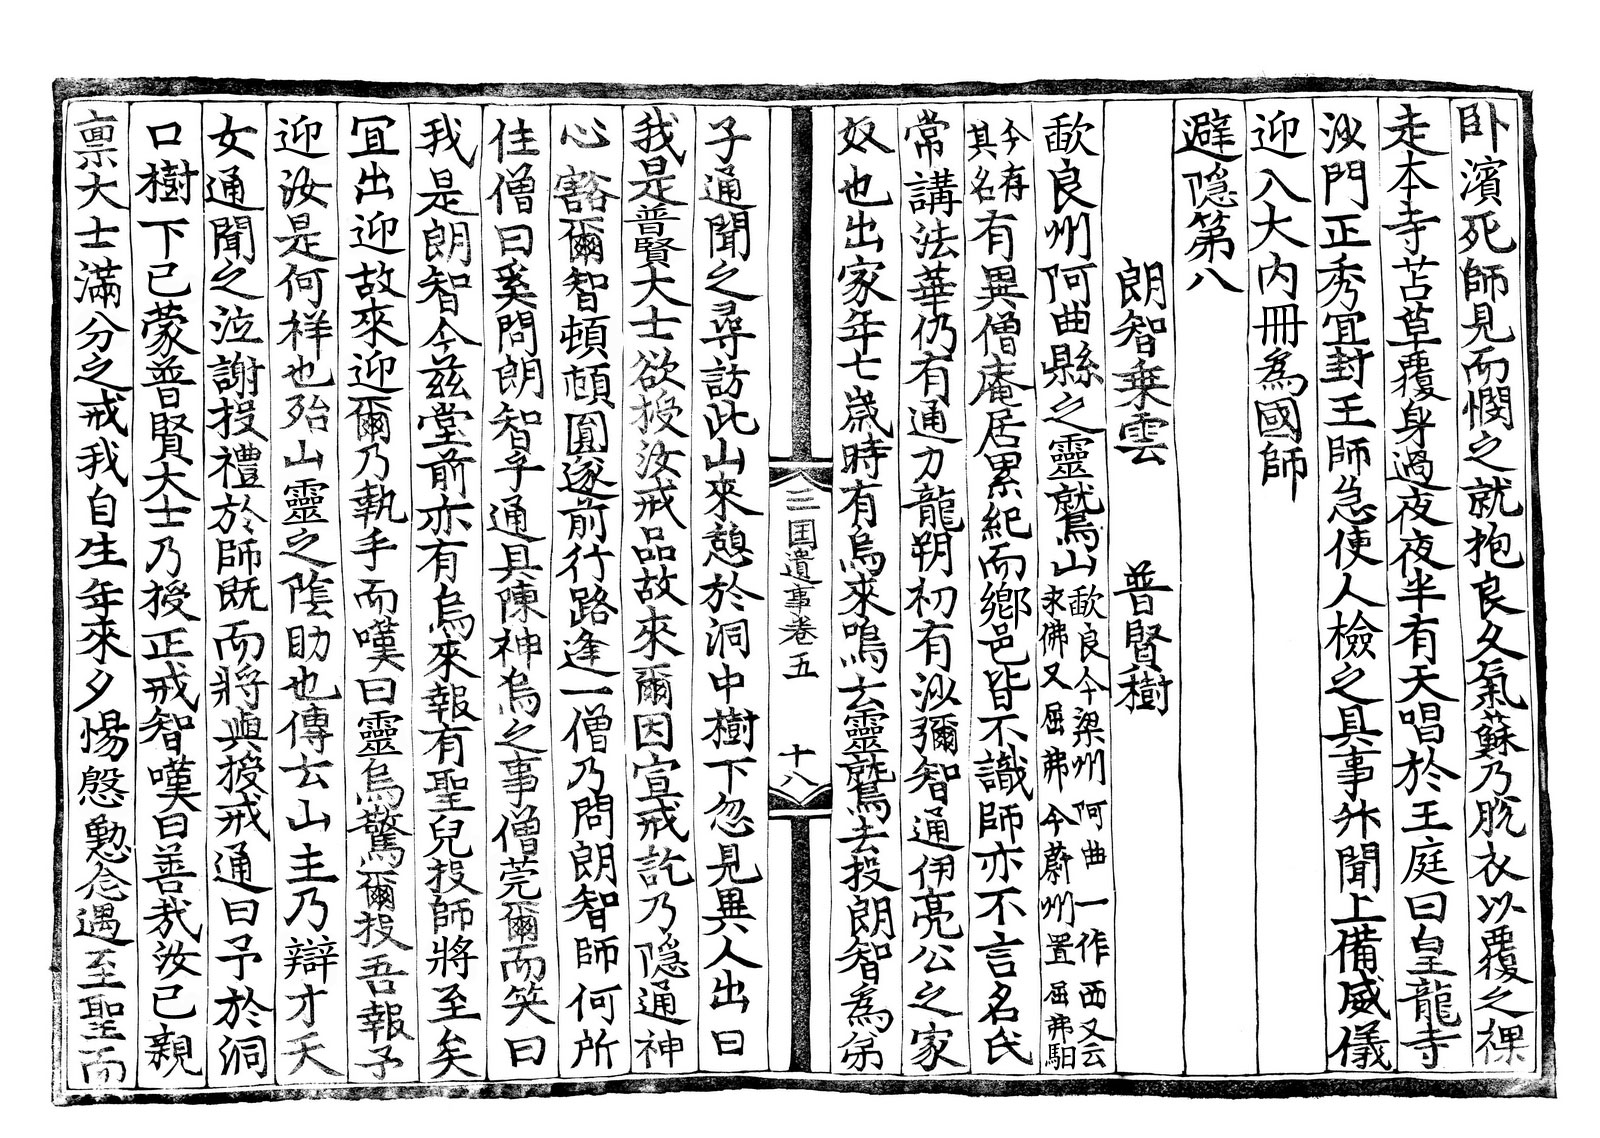 卧濱死師見而憫之就抱良久氣蘇乃脫衣以覆之裸
走本寺苫草覆身過夜夜半有天唱於王庭曰皇龍寺
沙門正秀冝封王師急使人檢之具事升聞上備威儀
迎入大內冊為國師
避隱第八
朗智乗雲　普賢樹
歃良州阿曲縣之靈鷲山歃良今梁州阿曲一作西又云
求佛又屈弗今蔚州置屈弗駅
今存
其名有異僧庵居累紀而鄕邑皆不識師亦不言名氏
常講法華仍有通力龍朔初有沙彌智通伊亮公之家
奴也出家年七歲時有烏來鳴云靈鷲去投朗智為弟
三国遺事卷五　十八
子通聞之尋訪此山來憩於洞中樹下忽見異人出曰
我是普賢大士欲授汝戒品故來爾因宣戒訖乃隱通神
心豁爾智頓頓圓遂前行路逢一僧乃問朗智師何所
住僧曰奚問朗智乎通具陳神烏之事僧莞爾而笑曰
我是朗智今兹堂前亦有烏來報有聖兒投師將至矣
冝出迎故來迎爾乃執手而嘆曰靈烏驚爾投吾報予
迎汝是何样也殆山靈之陰助也傳云山主乃辯才天
女通聞之泣謝投禮於師既而將與授戒通曰予於洞
口樹下已蒙普賢大士乃授正戒智嘆曰善哉汝已親
禀大士滿分之戒我自生年來夕惕慇懃念遇至聖而